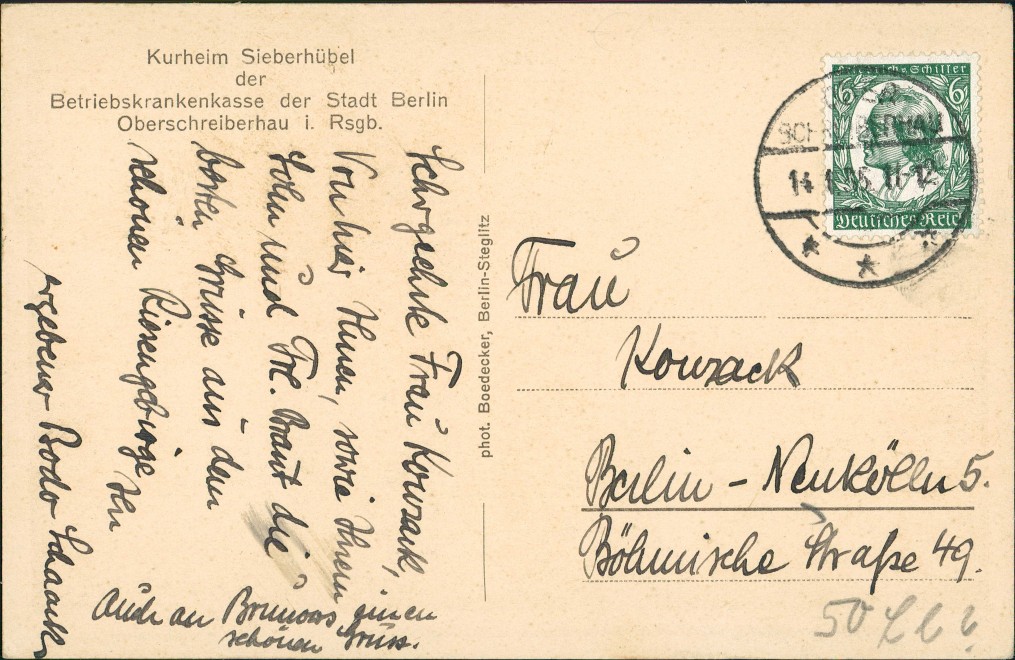 Kurheim Sieberhübel
der
Betriebskrankenkasse der Stadt Berlin
Oberschreiberhau i. Rsgb.
Sehrgeehrte Frau Kowsack,
Von hier Ihnen, sowie Ihrem
Sohn und Frl. Braut die
besten Grüsse aus dem
schönen Riesengebirge Ihr
ergebener Bodo Schaack
Auch an Brunows einen
schönen Gruss.
phot. Boedecker, Berlin-Steglitz
Friedrich v. Schiller
6 6
Deutsches Reich
11-12
Frau
Kowsack
Berlin - Neukölln 5.
Böhmische Straße 49.
50